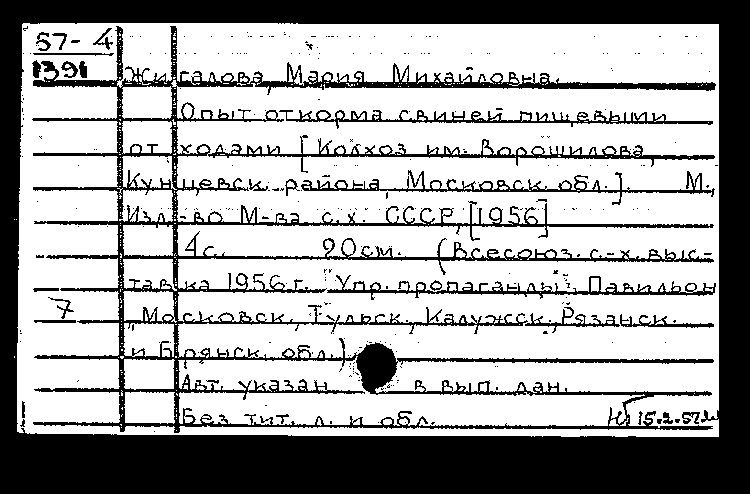 57-4
1391
Жигалова, Мария Михайловна.
Опыт откорма свиней пищевыми
отходами [Колхоз им. Ворошилова,
Кунцевск. района, Московск. обл.]. М.,
Изд-во М-ва с.х. СССР, [1956]
4с. 20см. (Всесоюз. с-х. выс-
тавка 1956 г. Упр. пропаганды. Павильон
7
"Московск., Тульск., Калужск., Рязанск.
и Брянск. обл.)
Авт. указан в вып. дан.
Без тит. л. и обл.
15.2.57